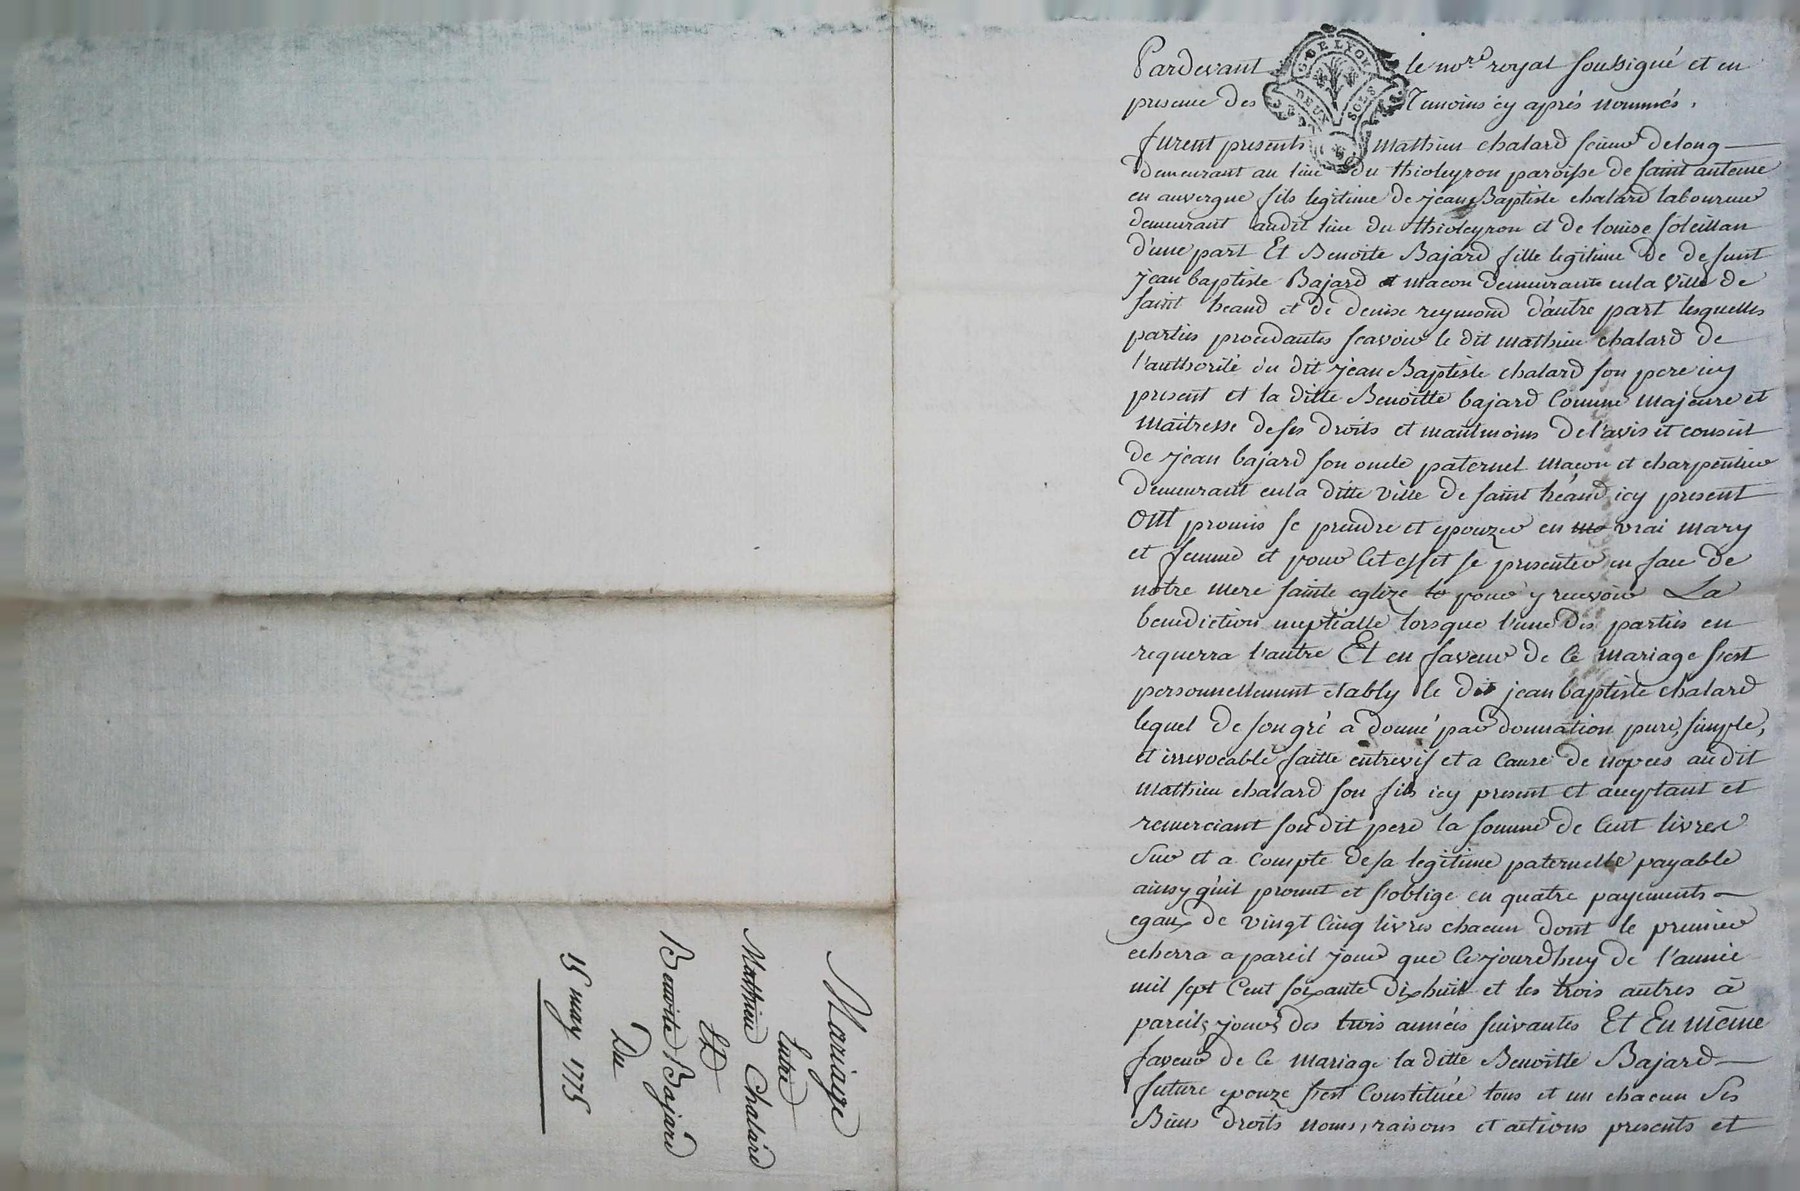 Pardevant le no.re royal soussigné et en
presence des Temoins icy aprés nommés.
furent presents mathieu chalard scieur de long
demeurant au lieu du thioleyron paroisse de saint anteme
en auvergne fils legitime de jean Baptiste chalard laboureur
demeurant audit lieu du thioleyron et de louise soleillan
d'une part Et Benoite Bajard fille legitime de defunt
jean baptiste Bajard macon demeurante en la ville de
saint heand et de denise reymond d'autre part lesquelles
parties procedantes scavoir le dit mathieu chalard de
l'authorité du dit jean Baptiste chalard son pere icy
present et la ditte Benoitte bajard Comme majeure et
maitresse de ses droits et neantmoins de l'avis et conseil
de jean bajard son oncle paternel macon et charpentier
demeurant en la ditte ville de saint héand icy present
Ont promis se prendre et epouzer en vrai mary
et femme et pour Cet effet se presenter en face de
notre mere sainte eglize pour y recevoir La
benediction nuptialle lorsque l'une des parties en
requerra l'autre Et en faveur de Ce mariage s'est
personnellement etably le dit jean baptiste chalard
lequel de son gré a donné par donnation pure, simple,
et irrevocable faitte entrevif et a Cause de nopces audit
mathieu chalard son fils icy present et acceptant et
remerciant son dit pere la somme de Cent livres
Sur et a Compte de sa legitime paternelle payable
ainsy qu'il promet et s'oblige en quatre payements
egaux de vingt Cinq livres chacun dont le premier
echerra a pareil jour que Ce jourd'huy de l'année
mil sept Cent soixante dixhuit et les trois autres à
pareils jours des trois années suivantes Et En même
faveur de Ce mariage la ditte Benoitte Bajard
future epouze s'est Constituée tous et un chacun Ses
Biens droits noms, raisons et actions presents et
G. DE LYON
DEUX SOLS
Mariage
Entre
Mathieu Chalard
Et
Benoite Bajard
Du
15 may 1775